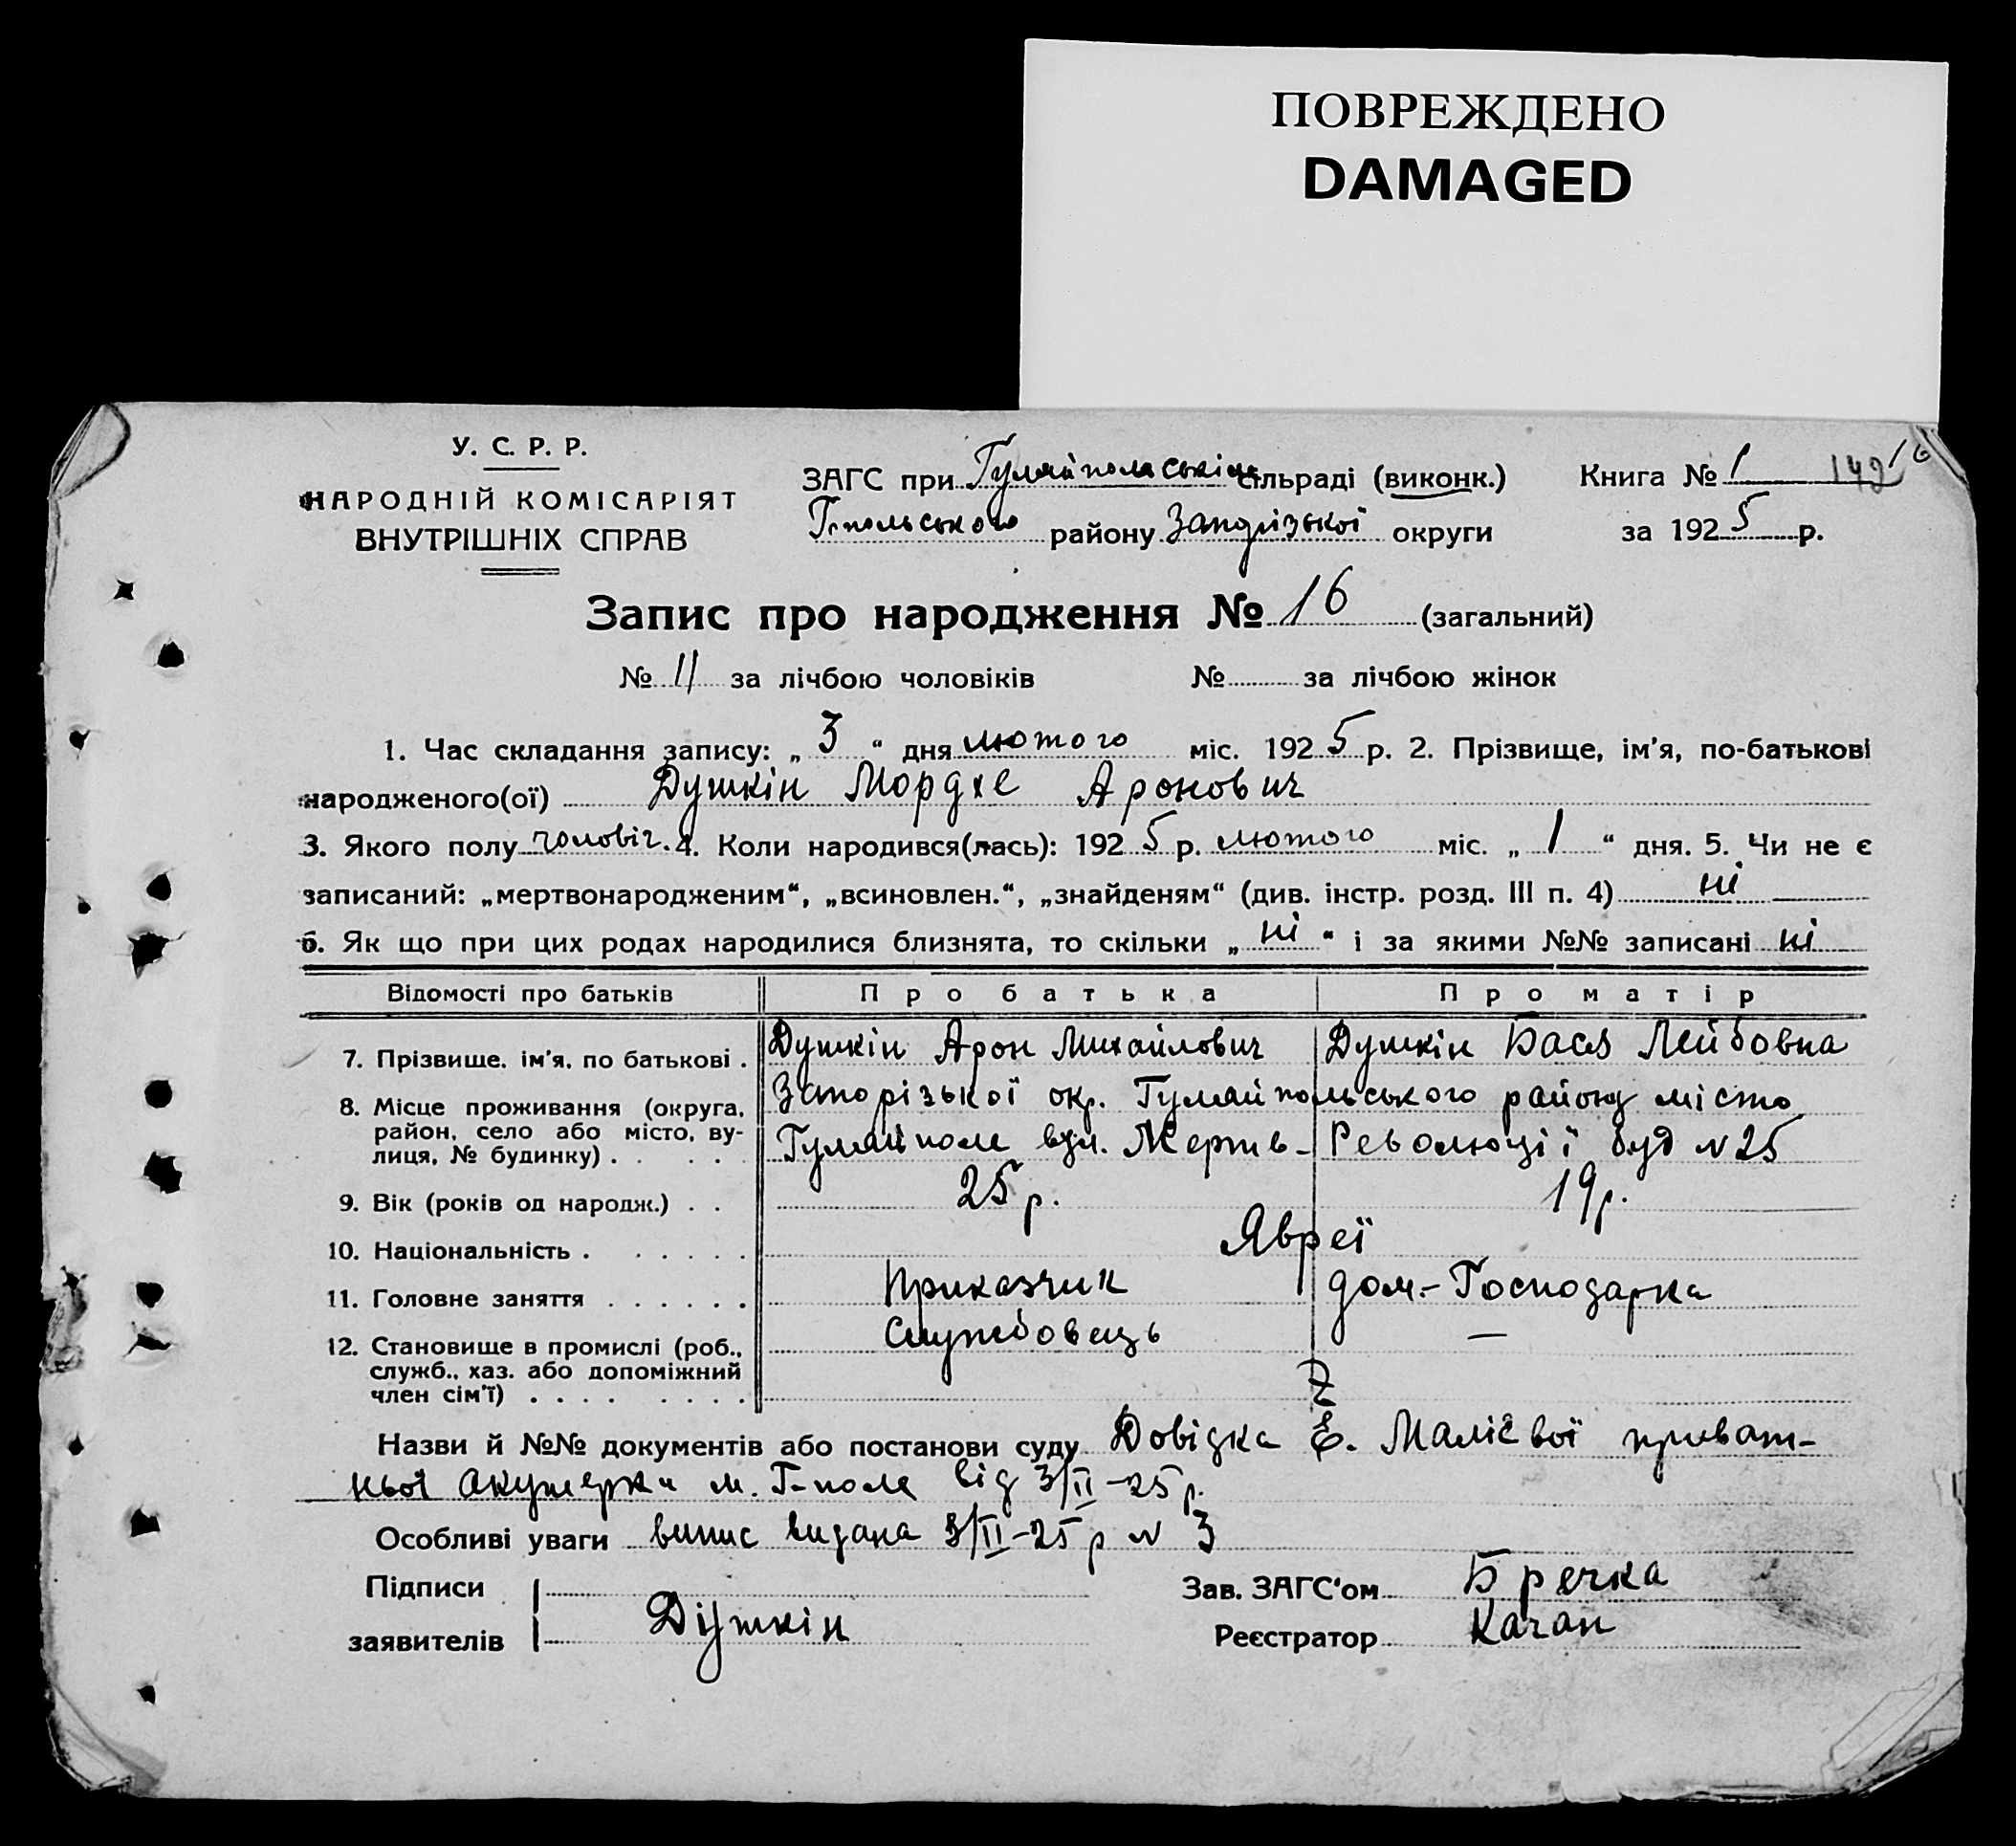 ПОВРЕЖДЕНО
DAMAGED
У. С. Р. Р.
НАРОДНІЙ КОМІСАРІЯТ
ВНУТРІШНІХ СПРАВ
ЗАГС при Гуляйпольськім сільраді (виконк.)
Г-польського району Запорізької округи
Книга № 1 149 16
за 1925 р.
Запис про народження № 16 (загальний)
№ 11 за лічбою чоловіків № за лічбою жінок
1. Час складання запису: „ 3 “ дня лютого міс. 1925 р. 2. Прізвище, ім'я, по-батькові
народженого(ої) Душкін Мордхе Аронович
3. Якого полу чоловіч. 4. Коли народився(лась): 1925 р. лютого міс. „ 1 “ дня. 5. Чи не є
записаний: „мертвонародженим“, „всиновлен.“, „знайденям“ (див. інстр. розд. III п. 4) ні
6. Як що при цих родах народилися близнята, то скільки „ ні “ і за якими №№ записані ні
Відомості про батьків Про батька Про матір
7. Прізвище, ім'я, по батькові . Душкін Арон Михайлович Душкін Бася Лейбовна
8. Місце проживання (округа, район, село або місто, вулиця, № будинку) . . . . Запорізької окр. Гуляйпольського району місто
Гуляйполе вул. Жертв-Революції буд N 25
9. Вік (років од народж.) . . 25 р. 19 р.
10. Національність . . . . . . Явреї
11. Головне заняття . . . . . . Приказчик дом.-Господарка
12. Становище в промислі (роб., служб., хаз. або допоміжний член сім'ї) . . . . . . . . Службовець —
Z
Назви й №№ документів або постанови суду Довідка Е. Малієвої приват-
ньоі акушерки м. Г-поля від 3/II-25 р.
Особливі уваги випис видана 3/II-25 р N 3
Підписи Зав. ЗАГС'ом Бречка
заявителів Душкін Реєстратор Качан